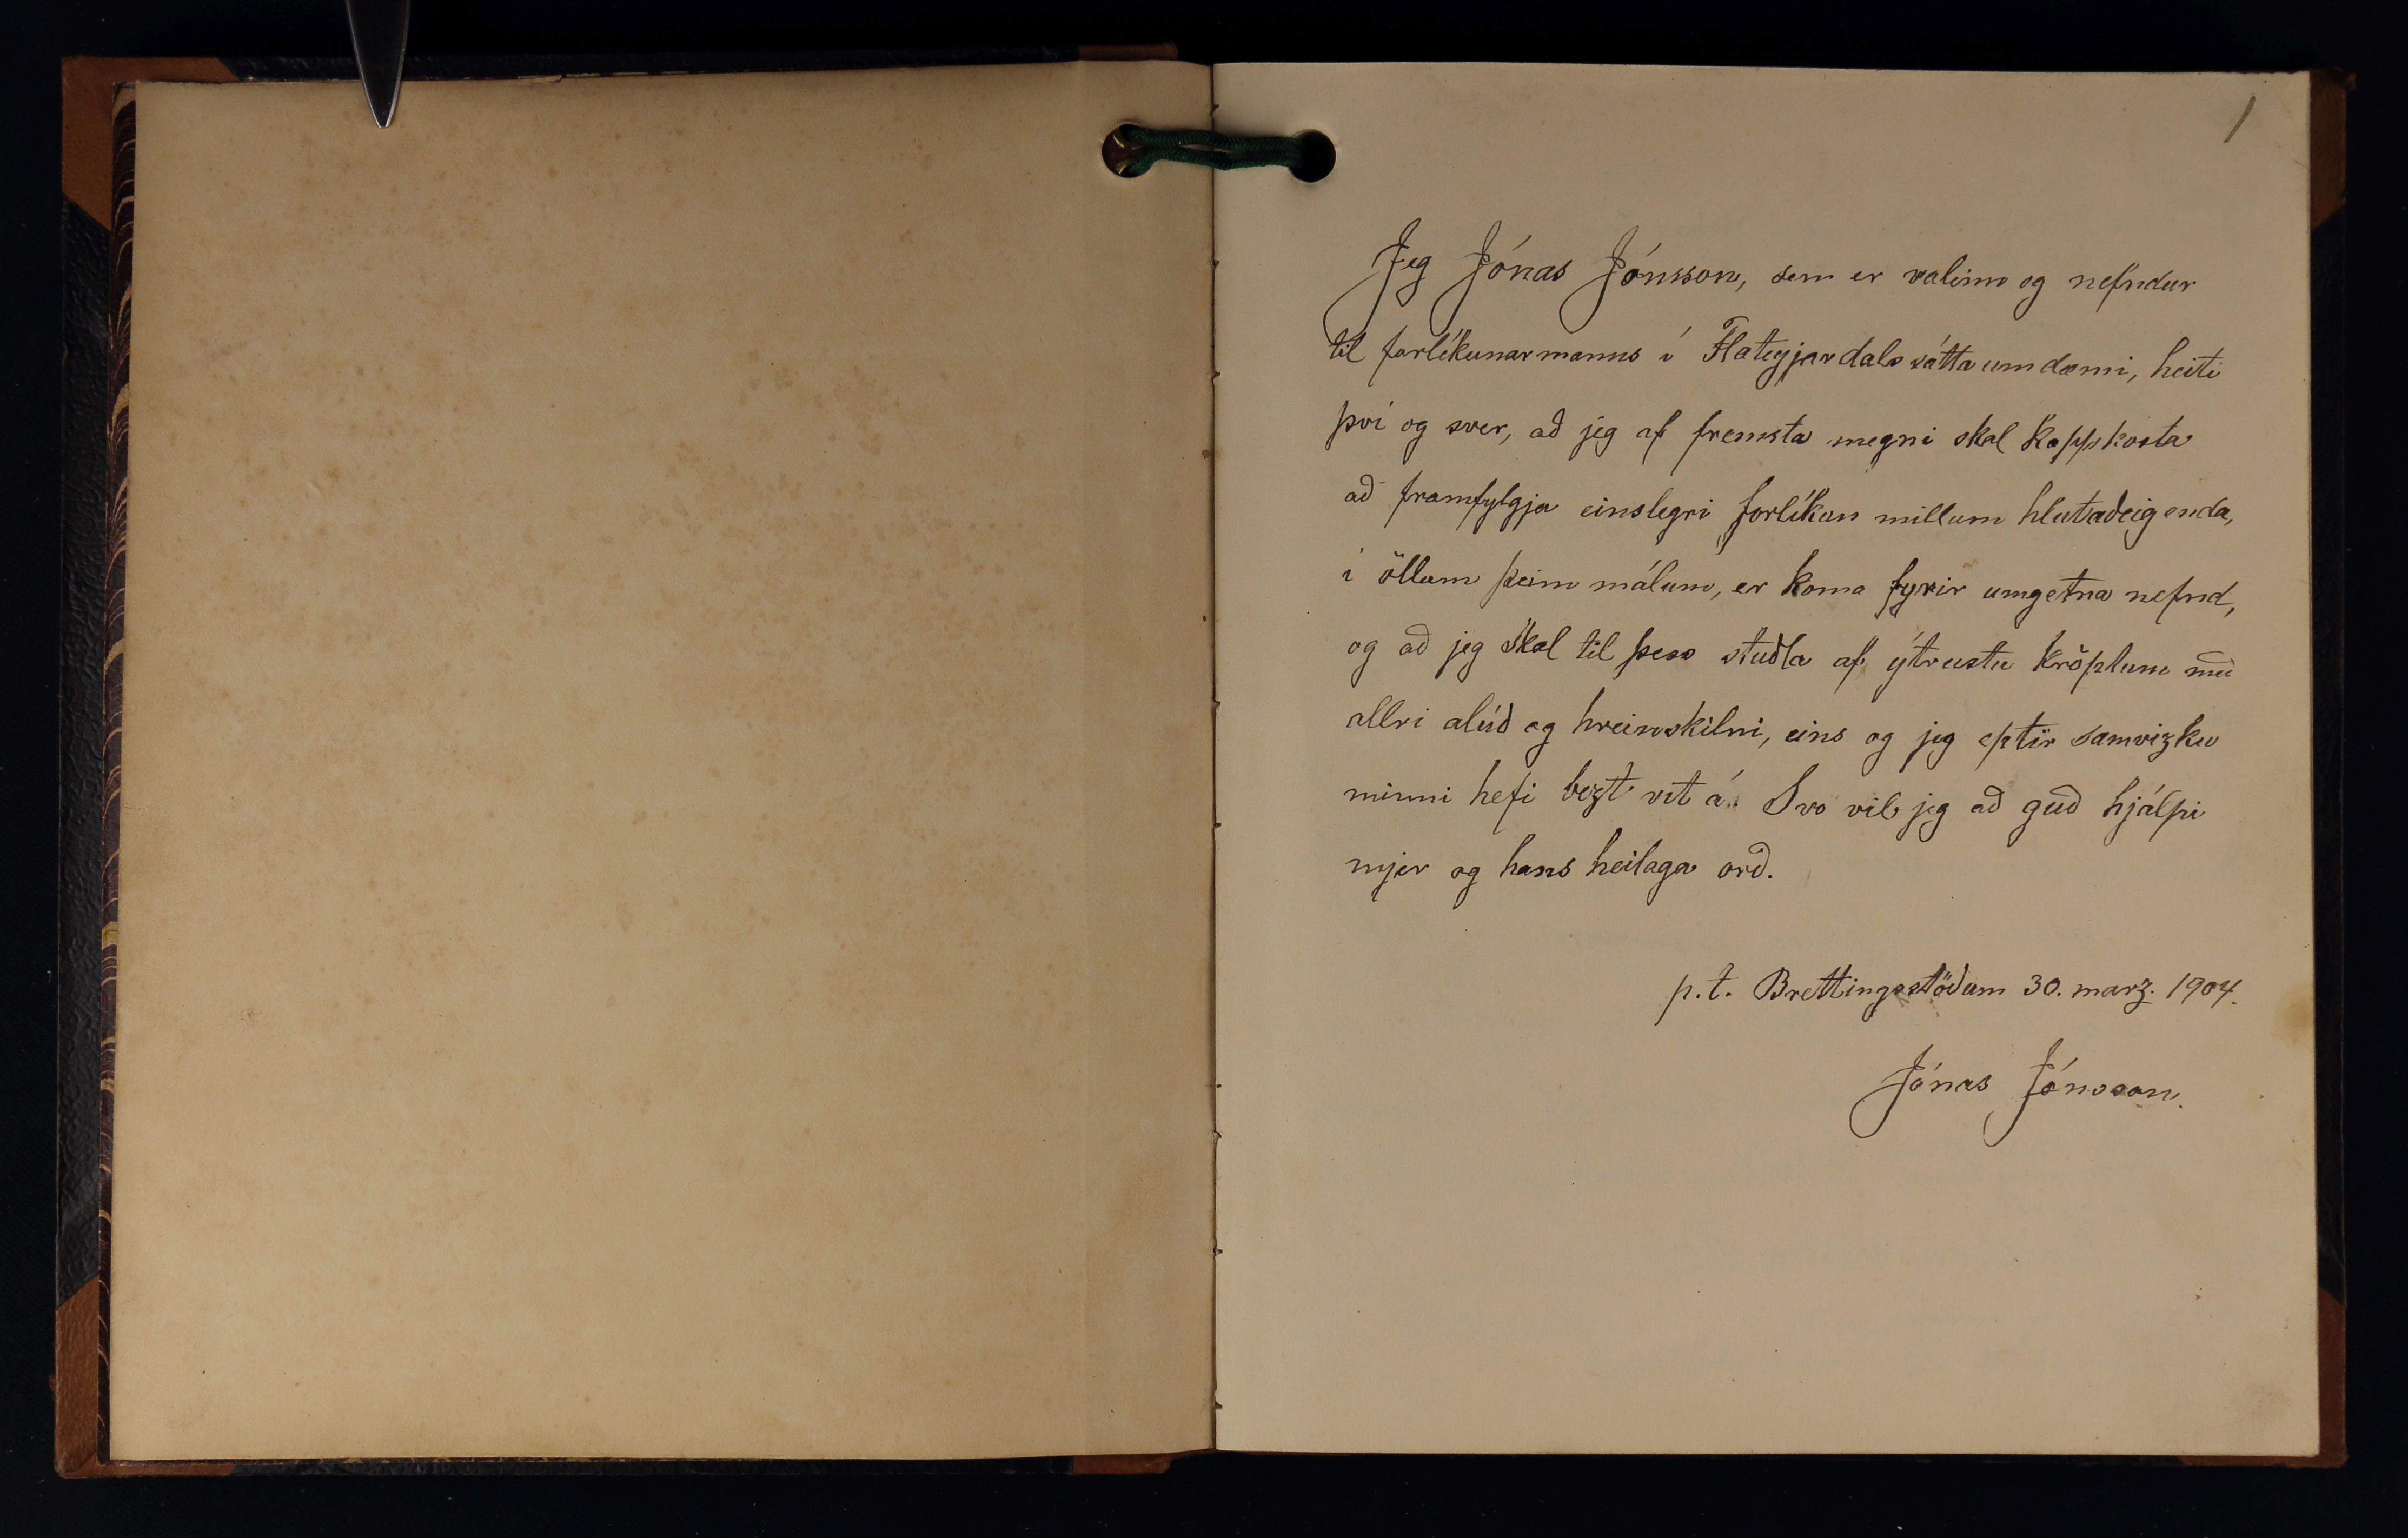 1
Jeg Jónas Jónsson, sem er valinn og nefndur
til forlíkunarmanns í Flateyjardals sátta umdæmi, heiti
því og sver, að jeg af fremsta megni skal kappkosta
að framfylgja einslegri forlíkun millum hlutaðeigenda,
í öllum þeim málum, er koma fyrir umgetna nefnd,
og að jeg skal til þess stuðla af ýtrustu kröptum með
allri alúð og hreinskilni, eins og jeg eptir samvizku
minni hefi bezt vit á. Svo vil jeg að guð hjálpi
mjer og hans heilaga orð.
p.t. Brettingsstöðum 30. marz. 1904.
Jónas Jónsson.